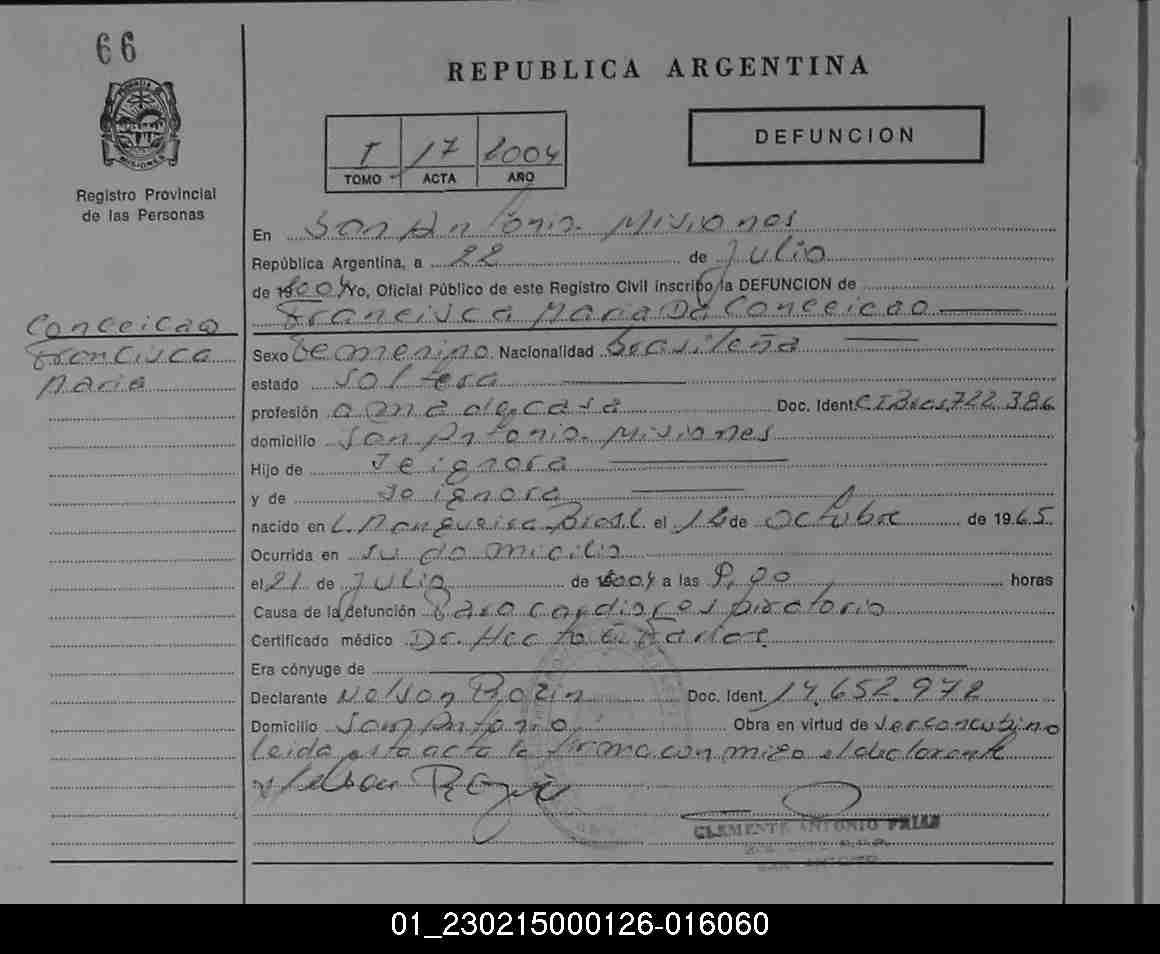 66
PROVINCIA DE MISIONES
Registro Provincial
de las Personas
REPUBLICA ARGENTINA
DEFUNCION
I 17 2004
TOMO ACTA AÑO
En San Antonio. Misiones
República Argentina, a 22 de Julio
de 2004 Yo, Oficial Público de este Registro Civil inscribo la DEFUNCION de
Francisca Maria Da Conceicao
Conceicao
Francisca
Maria
Sexo Femenino. Nacionalidad Brasileña
estado Soltera
profesión ama de casa Doc. Ident. C.I.Bras 722.386
domicilio San Antonio. Misiones
Hijo de Se ignora
y de Se ignora
nacido en L. Mangueira Brasil el 12 de Octubre de 1965.
Ocurrida en su domicilio
el 21 de Julio de 2004 a las horas
Causa de la defunción Paro cardiorespiratorio
Certificado médico Dr. Hector
Era cónyuge de
Declarante Nelson Doc. Ident. 14.652.972
Domicilio San Antonio Obra en virtud de ser concubino
leida esta acta la firma con migo el declarante
Nelson
CLEMENTE ANTONIO FRIAS
SAN ANTONIO
01_230215000126-016060